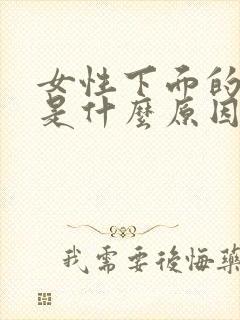 女性下面的
是什麼原因
我需要後悔藥